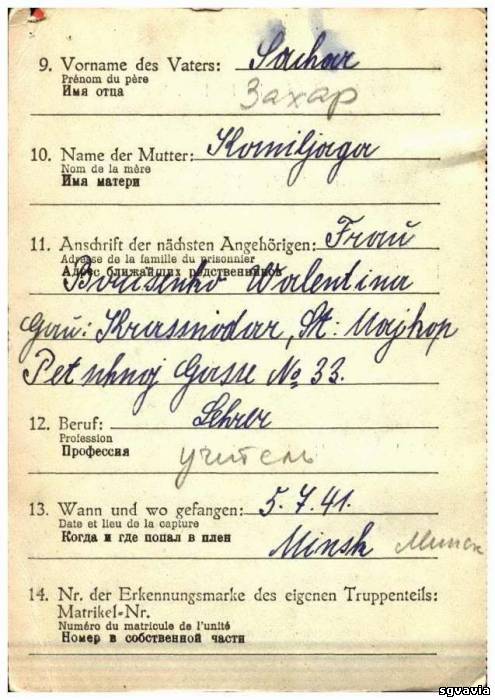 9. Vorname des Vaters: Sachar
Prénom du père
Имя отца
Захар
10. Name der Mutter: Kamiljaga
Nom de la mère
Имя матери
11. Anschrift der nächsten Angehörigen: Frau
Adresse de la famille du prisonnier
Адрес ближайших родственников
Borisenko Walentina
Gau: Krasnodar, St: Majkop
Gasse № 33.
12. Beruf: Lehrer
Profession
Профессия
учитель
13. Wann und wo gefangen: 5.7.41.
Date et lieu de la capture
Когда и где попал в плен
Minsk Минск
14. Nr. der Erkennungsmarke des eigenen Truppenteils:
Matrikel-Nr.
Numéro du matricule de l'unité
Номер в собственной части
sgvavia